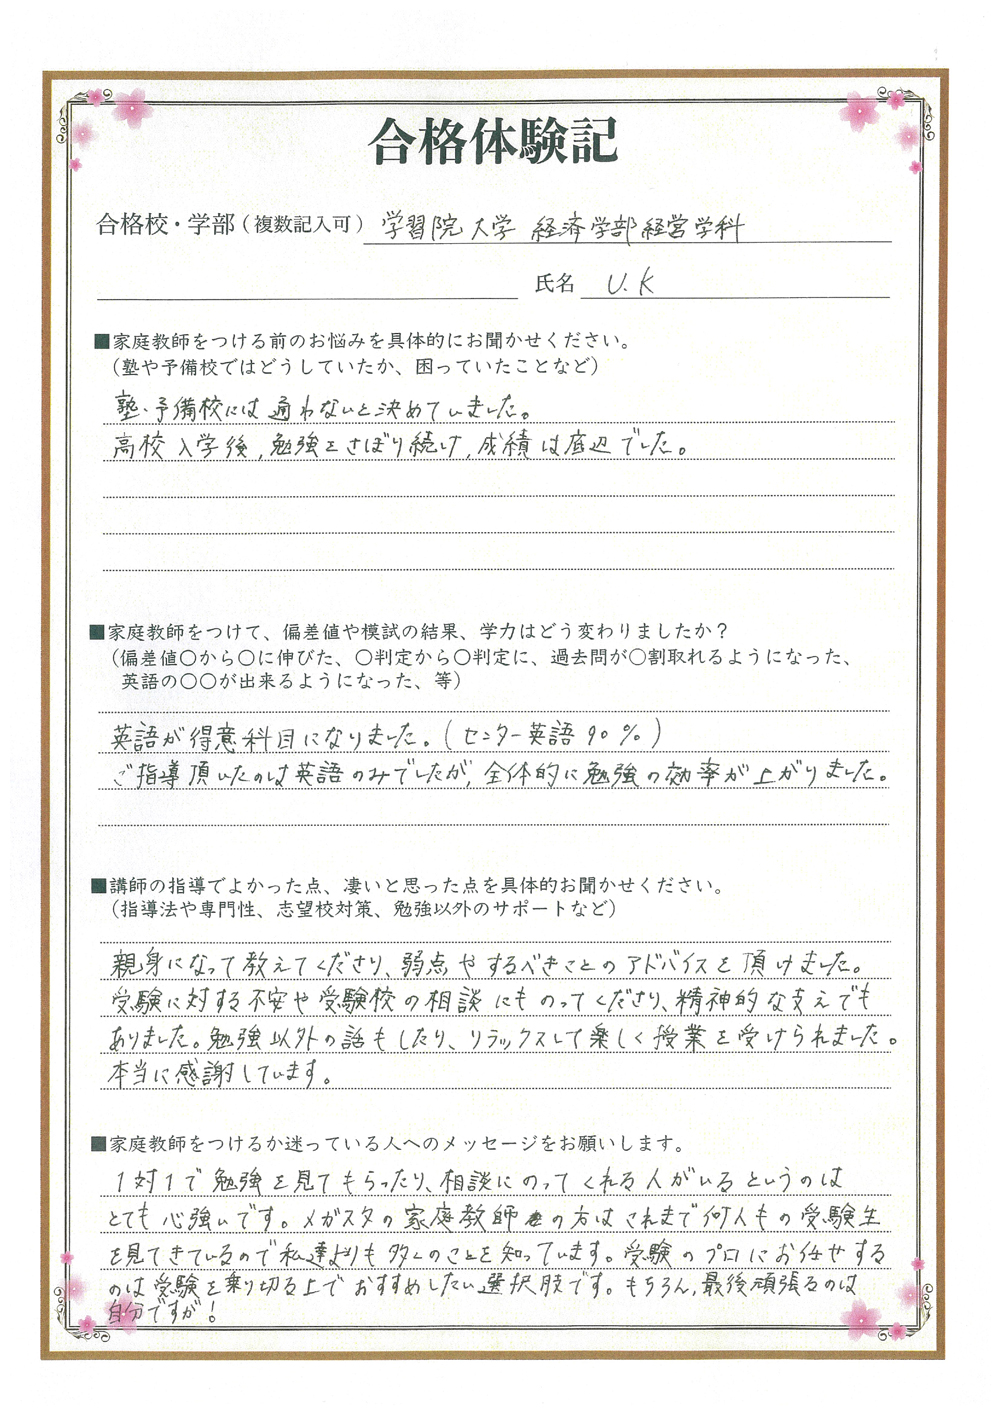 合格体験記
合格校・学部（複数記入可） 学習院大学 経済学部経営学科
氏名 U.K
■家庭教師をつける前のお悩みを具体的にお聞かせください。
（塾や予備校ではどうしていたか、困っていたことなど）
塾・予備校には通わないと決めていました。
高校入学後,勉強をさぼり続け,成績は底辺でした。
■家庭教師をつけて、偏差値や模試の結果、学力はどう変わりましたか？
（偏差値〇から〇に伸びた、〇判定から〇判定に、過去問が〇割取れるようになった、
英語の〇〇が出来るようになった、等）
英語が得意科目になりました。(センター英語90%)
ご指導頂いたのは英語のみでしたが,全体的に勉強の効率が上がりました。
■講師の指導でよかった点、凄いと思った点を具体的お聞かせください。
（指導法や専門性、志望校対策、勉強以外のサポートなど）
親身になって教えてくださり、弱点やするべきことのアドバイスを頂けました。
受験に対する不安や受験校の相談にものってくださり、精神的な支えでも
ありました。勉強以外の話もしたり、リラックスして楽しく授業を受けられました。
本当に感謝しています。
■家庭教師をつけるか迷っている人へのメッセージをお願いします。
1対1で勉強を見てもらったり、相談にのってくれる人がいるというのは
とても心強いです。メガスタの家庭教師の方はこれまで何人もの受験生
を見てきているので私達よりも多くのことを知っています。受験のプロにお任せする
のは受験を乗り切る上でおすすめしたい選択肢です。もちろん,最後頑張るのは
自分ですが!